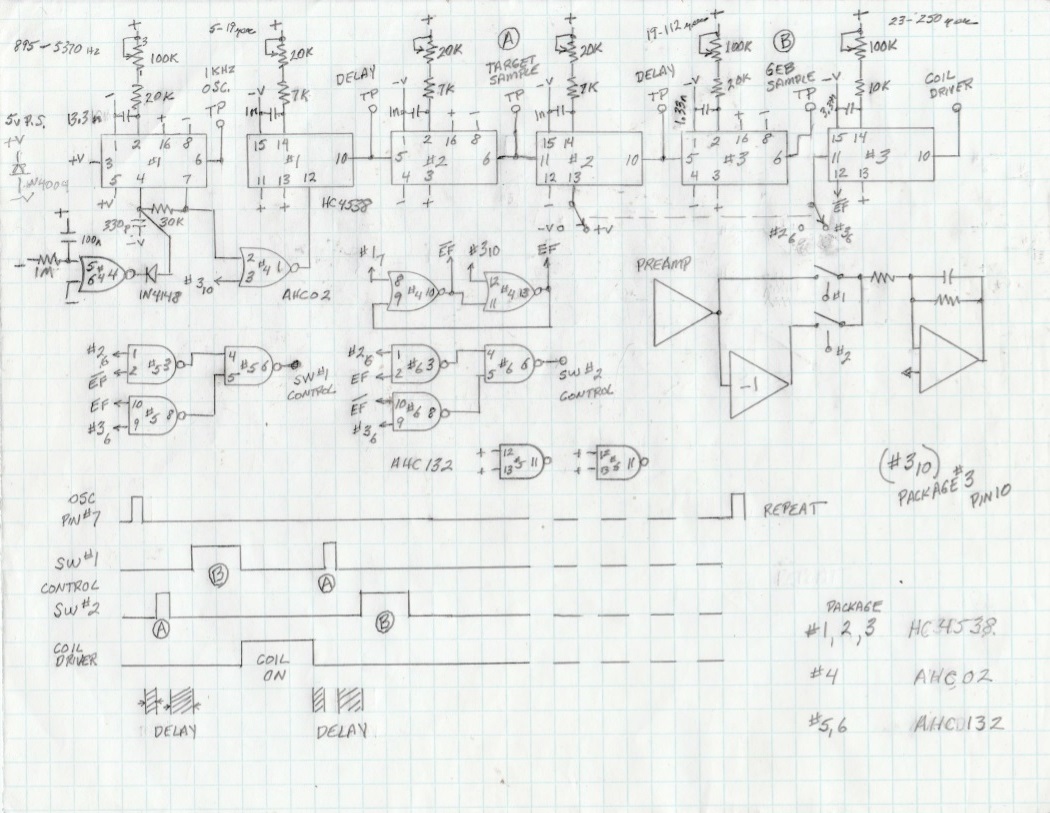 895-5370 HZ
100K
20K
13.3n
5V P.S.
+V
IN4004
-V
1KHZ
OSC.
TP
1 2 16 8
3 #1 6
5 4 7
+V
330p
30K
-V
100n
1M
5
6 #4 4
IN4148
2
3 #4 1
#3₁₀
AHC02
20K
7K
-V
1n
15 14
#1 10
11 13 12
HC4538
DELAY
TP
20K
7K
-V
1n
1 2 16 8
5 #2 6
4 3
Ⓐ
TARGET
SAMPLE
TP
20K
7K
-V
1n
15 14
11 #2 10
12 13
-V +V
DELAY
TP
100K
20K
-V
1.33n
1 2 16 8
5 #3 6
4 3
Ⓑ
GEB
SAMPLE
TP
23-250
100K
10K
-V
15 14
11 #3 10
12 13
EF
COIL
DRIVER
#2₆ #3₆
#1₇
8
9 #4 10
EF
#3₁₀
12
11 #4 13
EF
PREAMP
-1
#1
#2
#2₆
EF
1
2 #5 3
EF
#3₆
10
9 #5 8
4
5 #5 6
SW #1
CONTROL
#2₆
EF
1
2 #6 3
EF
#3₆
10
9 #6 8
4
5 #6 6
SW #2
CONTROL
AHC132
12
13 11
12
13 11
(#3₁₀)
PACKAGE #3
PIN 10
OSC
PIN #7
REPEAT
SW #1
CONTROL
Ⓑ
Ⓐ
SW #2
Ⓐ
Ⓑ
COIL
DRIVER
COIL
ON
DELAY
DELAY
PACKAGE
#1, 2, 3 HC4538
#4 AHC02
#5,6 AHC0132